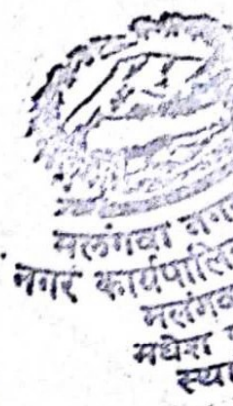 मलंगवा नगर
नगर कार्यपालि
मलंगव
मधेश
स्था